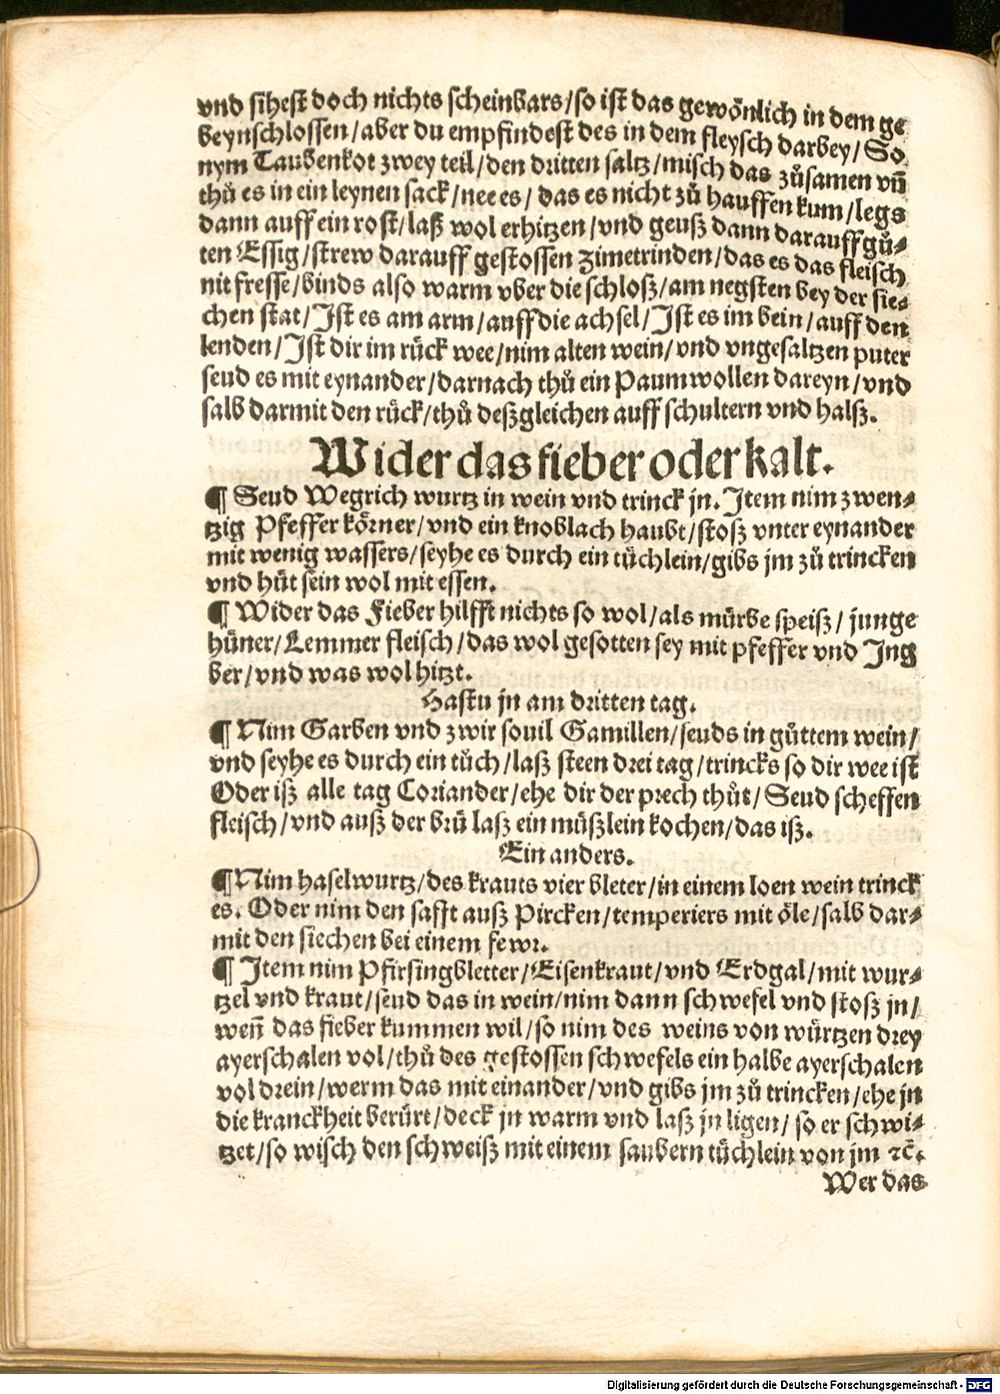 vnd sihest doch nichts scheinbars/so ist das gewönlich in dem ge
beynschlossen/aber du empfindest des in dem fleysch darbey/So
nym Taubenkot zwey teil/den dritten saltz/misch das zůsamen vn̄
thů es in ein leynen sack/nee es/ das es nicht zů hauffen kum/legs
dann auff ein rost/laß wol erhitzen/vnd geuß dann darauff gů⸗
ten Essig/strew darauff gestossen zimetrinden/das es das fleisch
nit fresse/binds also warm vber die schloß/am negsten bey der sie⸗
chen stat/Ist es am arm/auff die achsel/Ist es im bein/auff den
lenden/Ist dir im rück wee/nim alten wein/vnd vngesaltzen puter
seud es mit eynander/darnach thů ein Paumwollen dareyn/vnd
salb darmit den rück/thů deßgleichen auff schultern vnd halß.
Wider das fieber oder kalt.
¶ Seud Wegrich wurtz in wein vnd trinck jn. Item nim zwen⸗
tzig Pfeffer körner/vnd ein knoblach haubt/stoß vnter eynander
mit wenig wassers/seyhe es durch ein tüchlein/gibs jm zů trincken
vnd hüt sein wol mit essen.
¶ Wider das Fieber hilfft nichts so wol/als mürbe speiß/ junge
hüner/Lemmer fleisch/das wol gesotten sey mit pfeffer vnd Ing
ber/vnd was wol hitzt.
Hastu jn am dritten tag.
¶ Nim Garben vnd zwir souil Gamillen/seuds in gůttem wein/
vnd seyhe es durch ein tůch/laß steen drei tag/trincks so dir wee ist
Oder iß alle tag Coriander/ehe dir der prech thůt/Seud scheffen
fleisch/vnd auß der brü laß ein müßlein kochen/das iß.
Ein anders.
¶ Nim haselwurtz/des krauts vier bleter/in einem loen wein trinck
es. Oder nim den safft auß Pircken/temperiers mit öle/salb dar⸗
mit den siechen bei einem fewr.
¶ Item nim Pfirsingbletter/Eisenkraut/vnd Erdgal/mit wur⸗
tzel vnd kraut/seud das in wein/nim dann schwefel vnd stoß jn/
wen̄ das fieber kummen wil/so nim des weins von würtzen drey
ayerschalen vol/thů des gestossen schwefels ein halbe ayerschalen
vol drein/werm das mit einander/vnd gibs jm zů trincken/ehe jn
die kranckheit berürt/deck jn warm vnd laß jn ligen/ so er schwi⸗
tzet/so wisch den schweiß mit einem saubern tüchlein von jm ⁊c̄.
Wer das
Digitalisierung gefördert durch die Deutsche Forschungsgemeinschaft - DFG